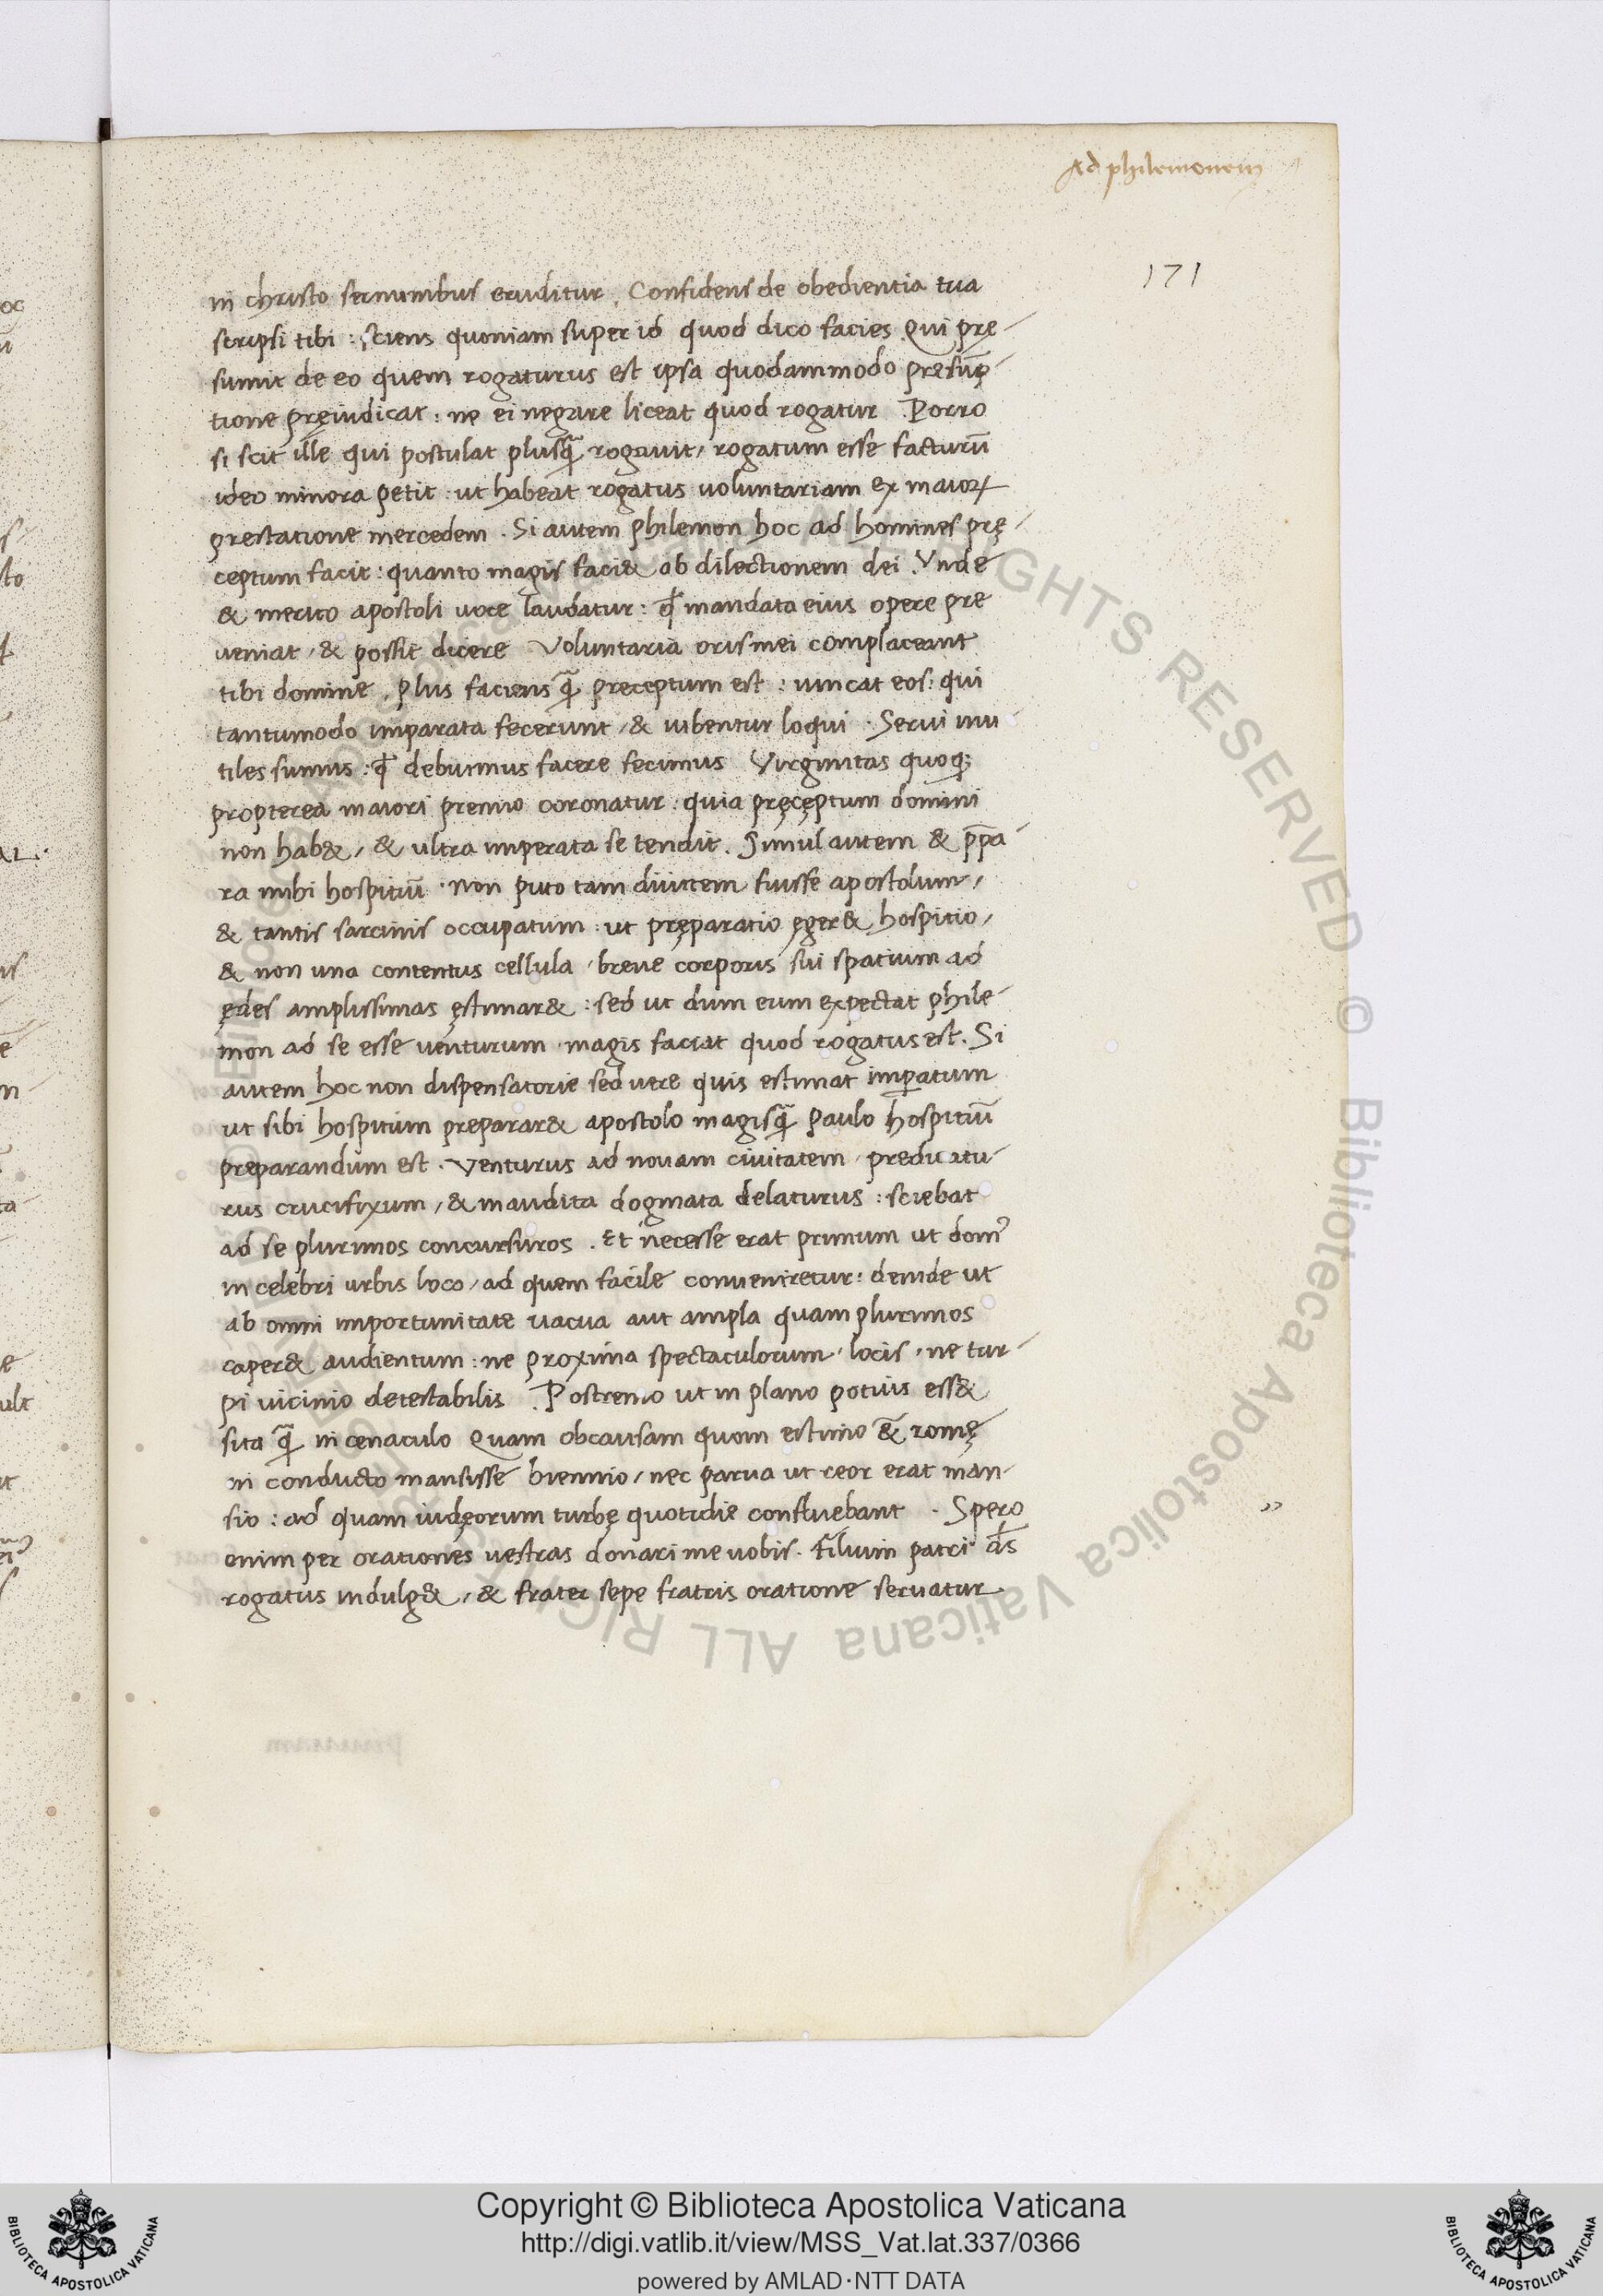 Ad philemonem
171
in christo sermonibus eruditur. Confidens de obedientia tua
scripsi tibi: sciens quoniam super id quod dico facies. Qui prę-
sumit de eo quem rogaturus est ipsa quodammodo presūp-
tione pręiudicat: ne ei negare liceat quod rogatur. Porro
si scit ille qui postulat plusq̄ rogauit, rogatum esse facturū
ideo minora petit: ut habeat rogatus uoluntariam ex maioꝝ
prestatione mercedem. Si autem philemon hoc ad hominis prę-
ceptum facit: quanto magis faci& ob dilectionem dei. Vnde
& merito apostoli uoce laudatur: qđ mandata eius opere pre
ueniat, & possit dicere Voluntaria oris mei complaceant
tibi domine. plus faciens q̄ preceptum est: uincat eos: qui
tantumodo imparata fecerunt, & iubentur loqui. Serui inu
tiles sumus: qđ debuimus facere fecimus Virginitas quoq;
propterea maiori premio coronatur: quia pręcęptum domini
non hab&, & ultra imperata se tendit. Simul autem & p̄pa-
ra mihi hospitiū. non puto tam diuitem fuisse apostolum,
& tantis sarcinis occupatum: ut pręparatio ęger& hospitio,
& non una contentus cellula, breue corporis sui spatium ad
ędes amplissimas ęstimar&: sed ut dum eum expectat phile-
mon ad se esse uenturum, magis faciat quod rogatus est. Si
autem hoc non dispensatorie sed uere quis estimat imꝑatum
ut sibi hospitium preparar& apostolo magisq̄ paulo hospitiū
preparandum est. Venturus ad nouam ciuitatem, predicatu-
rus crucifixum, & inaudita dogmata delaturus: sciebat
ad se plurimos concursuros. Et necesse erat primum ut dom⁹
in celebri urbis loco, ad quem facile conueniretur: deinde ut
ab omni importunitate uacua aut ampla quam plurimos
caper& audientum: ne proxima spectaculorum, locis, ne tur-
pi uicinio detestabilis. Postremo ut in plano potius ess&
sita q̄ in cenaculo Quam obcausam quom estimo &̄ romę
in conducto mansisse biennio, nec parua ut reor erat man-
sio: ad quam iudęorum turbę quotidie confluebant. Spero
enim per orationes uestras donari me uobis. Filium patri
rogatus indulg&, & frater sepe fratris oratione seruatur.
Copyright © Biblioteca Apostolica Vaticana
http://digi.vatlib.it/view/MSS_Vat.lat.337/0366
powered by AMLAD·NTT DATA